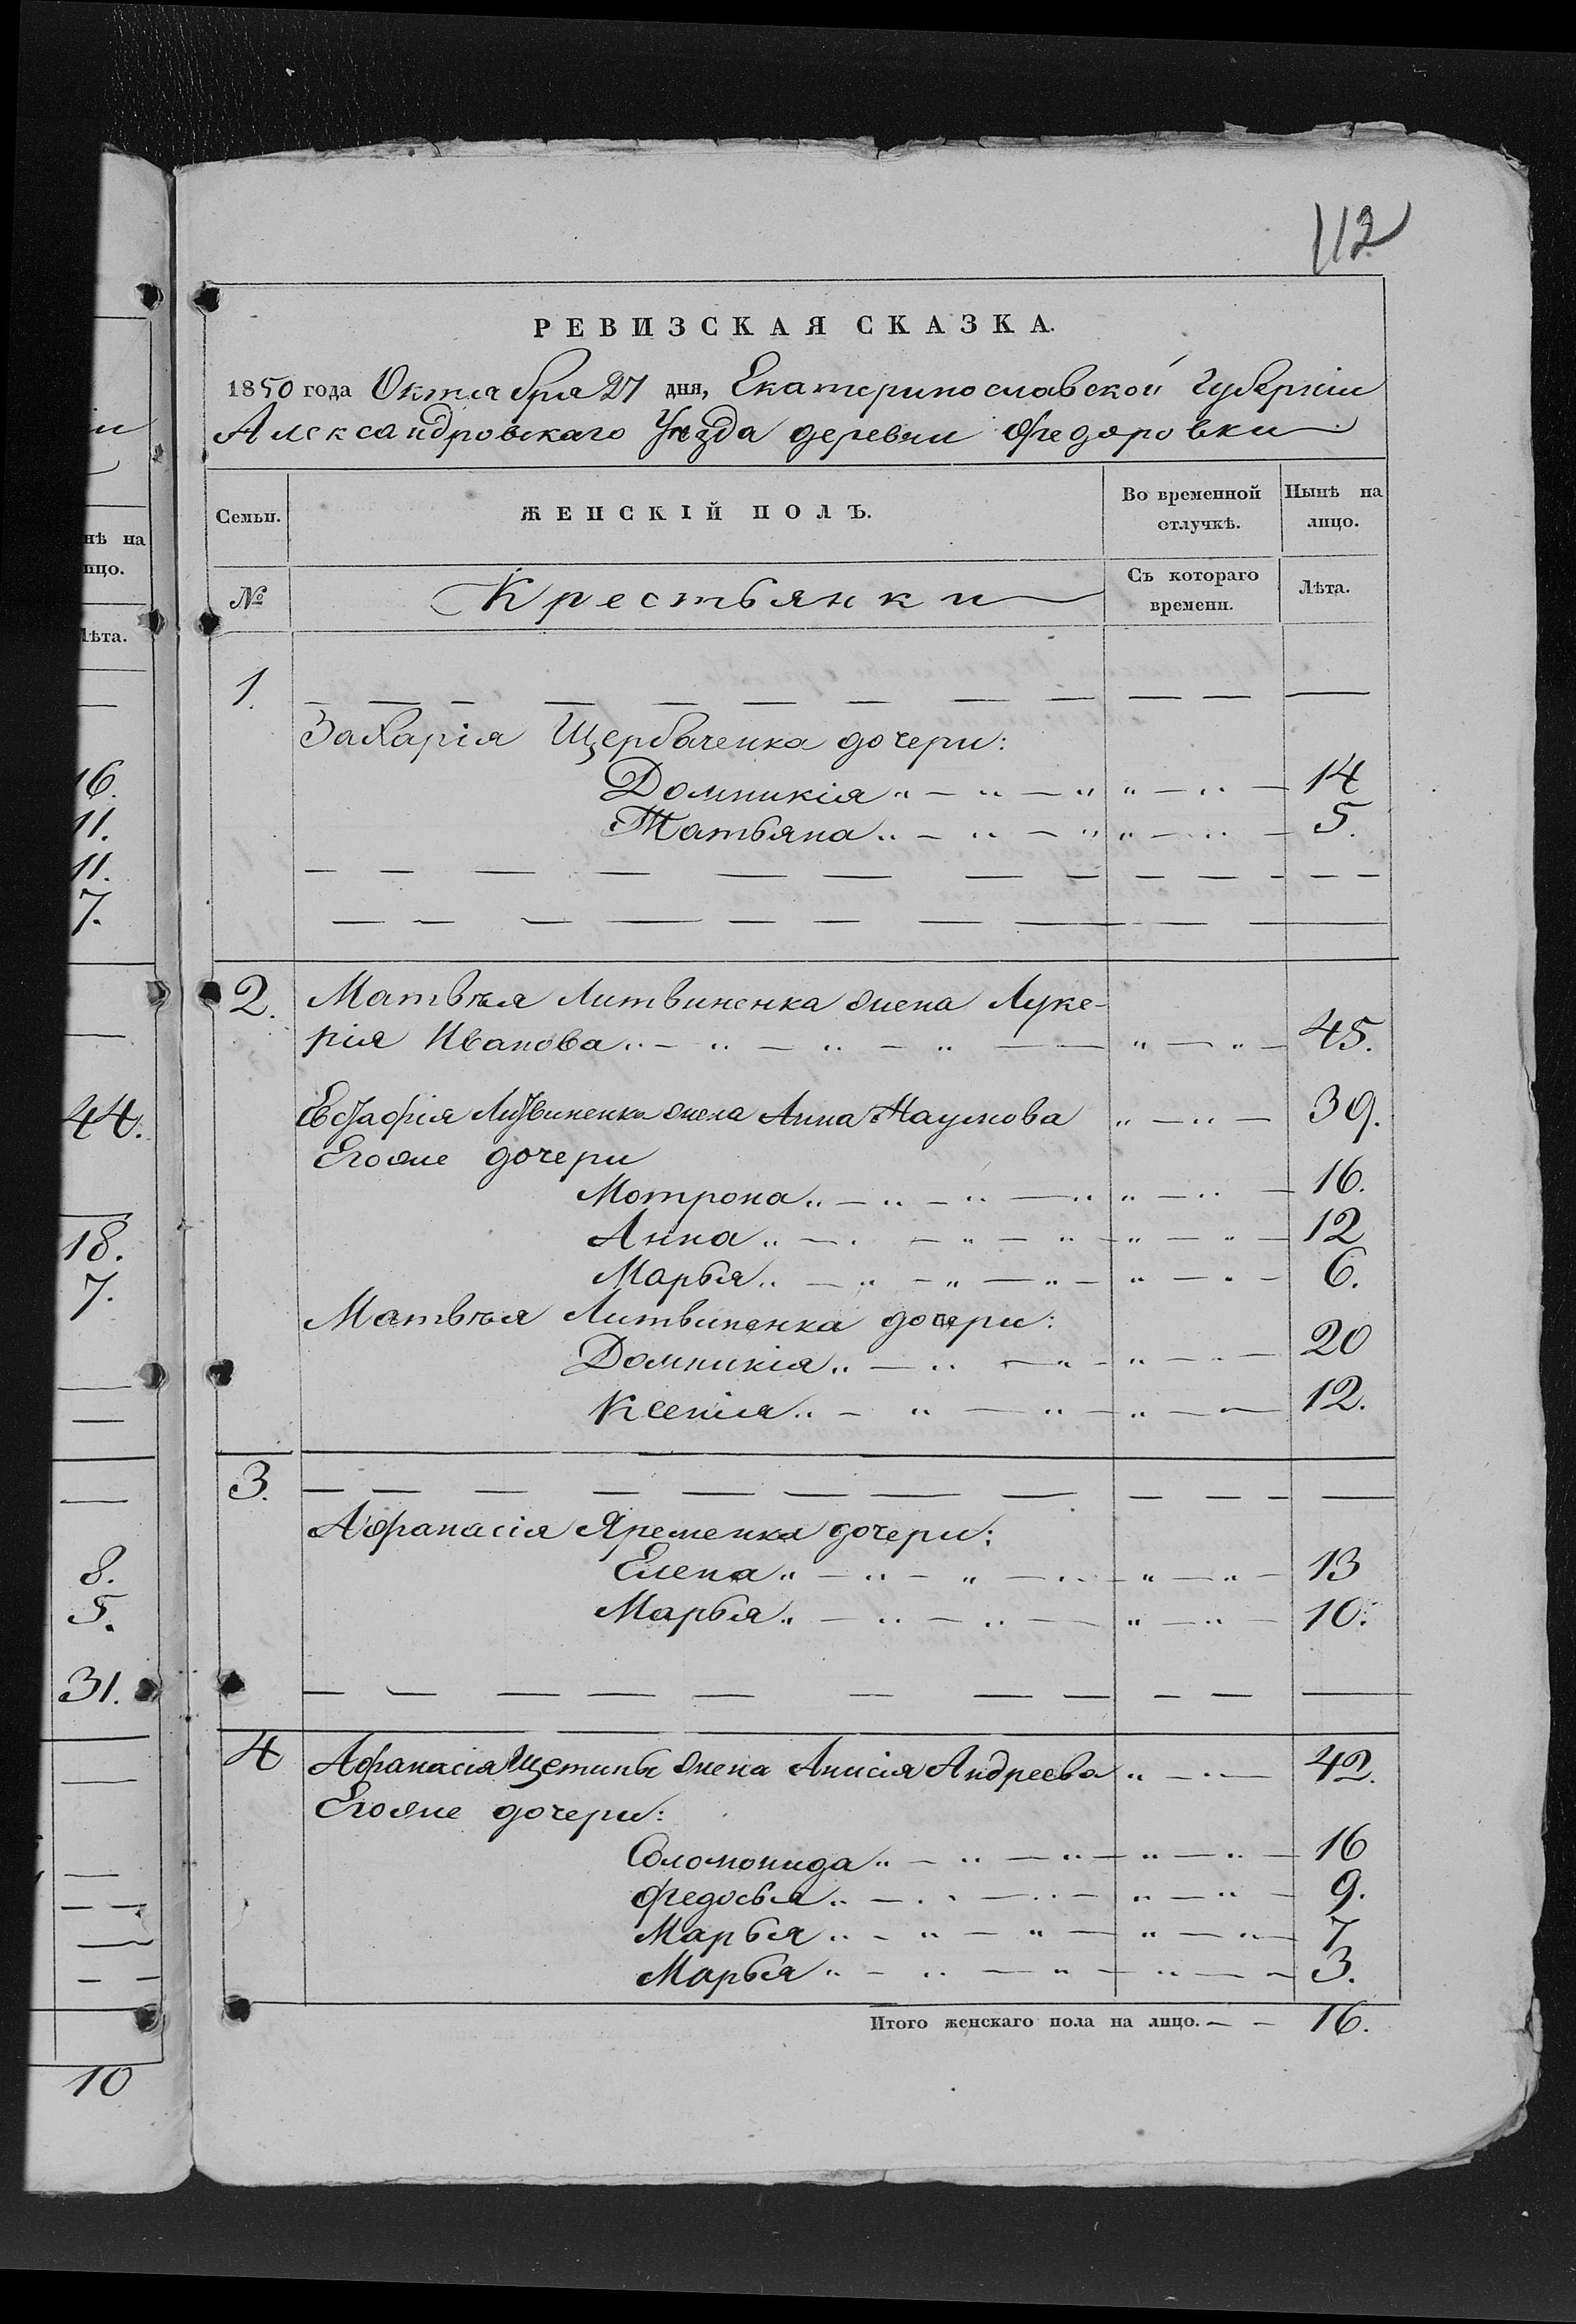 112
РЕВИЗСКАЯ СКАЗКА.
1850 года Октября 27 дня, Екатеринославской Губерніи
Александровскаго Уезда деревни Федоровки
Семьи. ЖЕНСКІЙ ПОЛЪ. Во временной отлучкѣ. Нынѣ на лицо.
№ Крестьянки Съ котораго времени. Лѣта.
1.
Захарія Щербаченка дочери:
Домникія 14
Татьяна 5.
2. Матвѣя Литвиненка жена Луке-
рія Иванова 45.
Евстафія Литвиненка жена Анна Наумова 39.
Егоже дочери
Мотрона 16.
Анна 12
Марья 6.
Матвѣя Литвиненка дочери:
Домникія 20
Ксенія 12.
3.
Афанасія Яременка дочери:
Елена 13
Марья 10.
4 Афанасія Щетины жена Анисія Андреева 42.
Егоже дочери:
Соломонида 16
Федосья 9.
Марья 7
Марья 3.
Итого женскаго пола на лицо. 16.
нѣ на
лицо.
Лѣта.
16.
11.
11.
7.
44.
18.
7.
8.
5.
31.
10